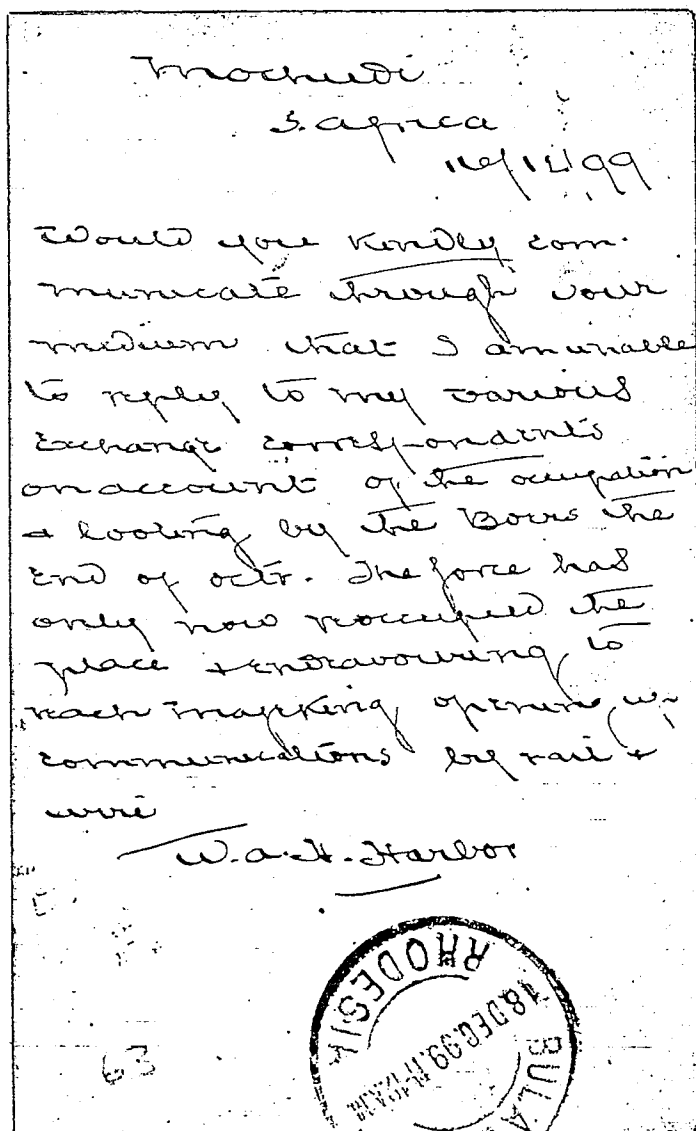 Mochudi
S. Africa
16/12/99
Would you kindly com-
municate through your
medium that I am unable
to reply to my various
exchange correspondents
on account of the occupation
& looting by the Boers the
end of octr. The force has
only now reoccupied the
place & endeavouring to
reach Mafeking opening up
communications by rail &
wire
W.A.H. Harbor
RHODESIA
18 DEC. 99. 11
BULA
63